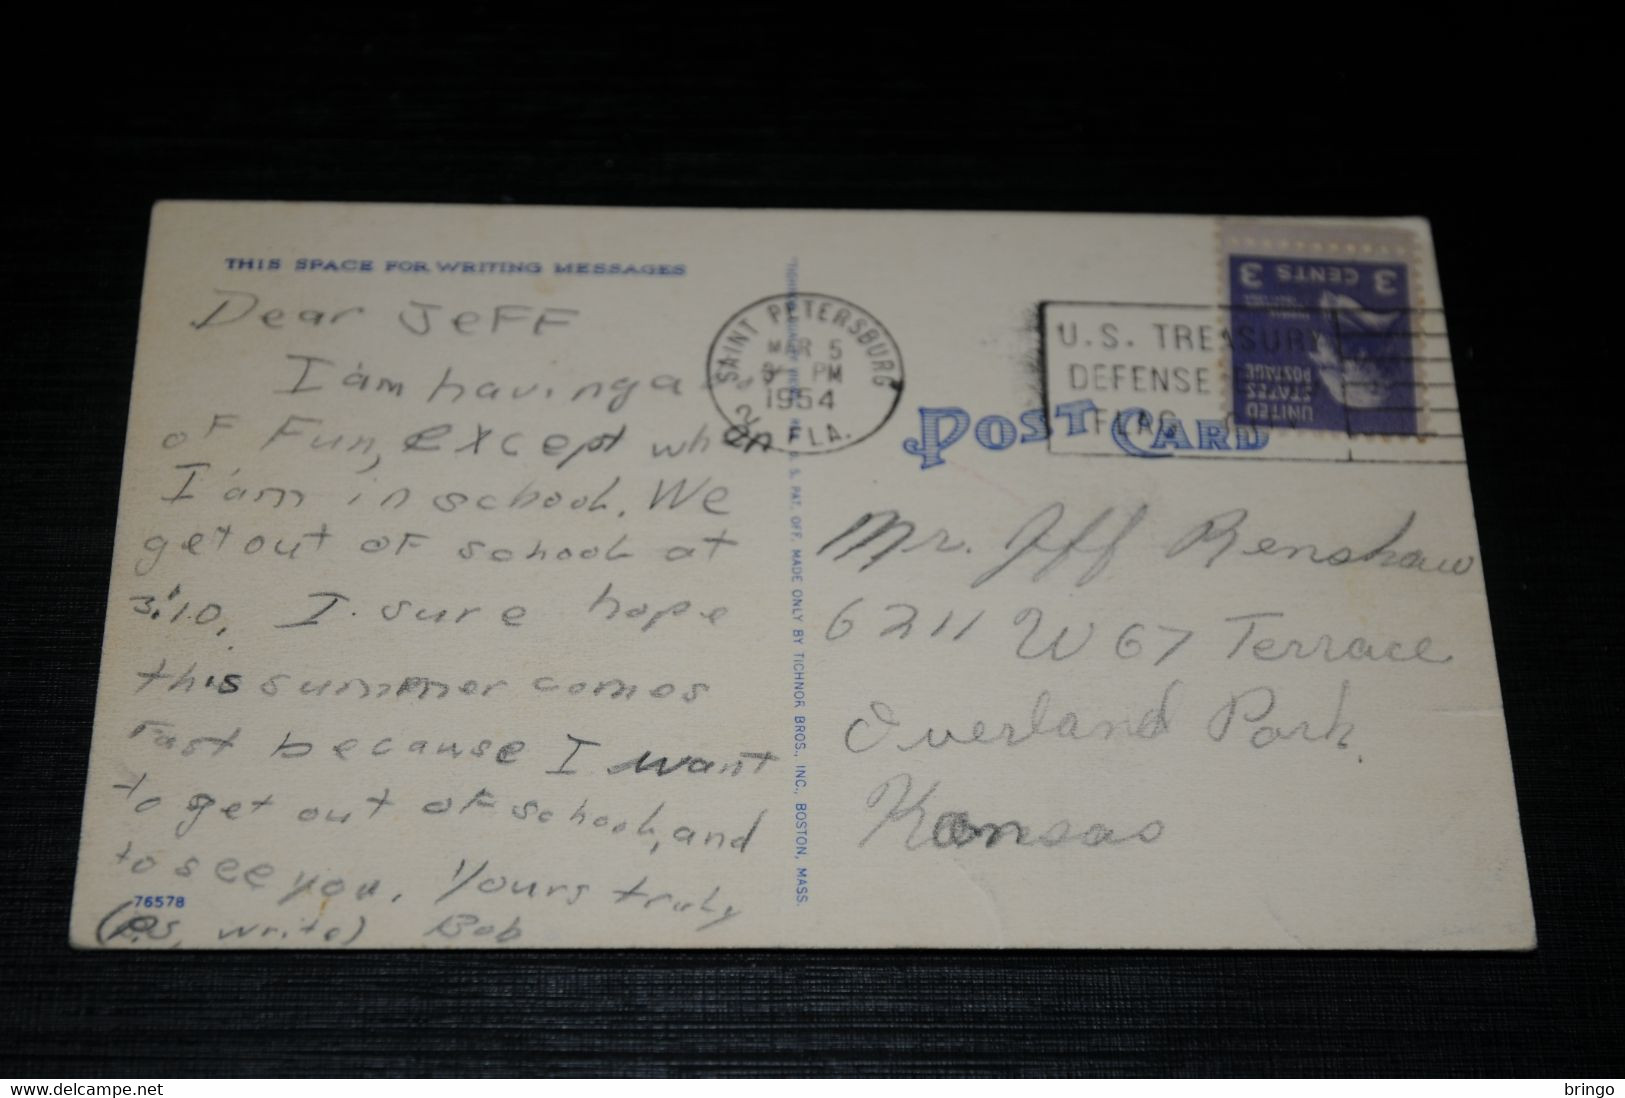 THIS SPACE FOR WRITING MESSAGES
Dear JeFF
I am having a
of Fun, except when
I am in school. We
get out of school at
3:10. I sure hope
this summer comes
Fast because I want
to get out of school, and
to see you. Yours truly
(P.S. write) Bob
76578
SAINT PETERSBURG
MAR 5
PM
1954
FLA.
U.S. TREASURY
DEFENSE
FLAG
3 CENTS 3
UNITED
STATES
POSTAGE
POST CARD
U. S. PAT. OFF. MADE ONLY BY TICHNOR BROS., INC., BOSTON, MASS.
Mr. Jeff Renshaw
6211 W 67 Terrace
Overland Park
Kansas
delcampe.net
bringo